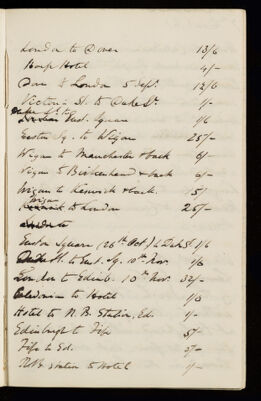 London to Dover 13/6
Hotel 4/-
Dover to London 5 Sept. 12/6
Victoria St. to Duke St. 1/-
Duke St. to
Eust. Square 1/6
Euston Sq. to Wigan 25/-
Wigan to Manchester & back 6/-
Wigan to Birkenhead & back 6/-
Wigan to & back 5/-
Wigan
to London 25/-
Euston Square (26th Oct.) to Duke St 1/6
Duke St. to Eust. Sq. 10th Nov. 1/6
London to Edinb. 10th Nov. 32/-
Caledonian to Hotel 1/3
Hotel to N. B. Station, Ed. 1/-
Edinburgh to Fife 5/-
Fife to Ed.
N.B. Station to Hotel 1/-